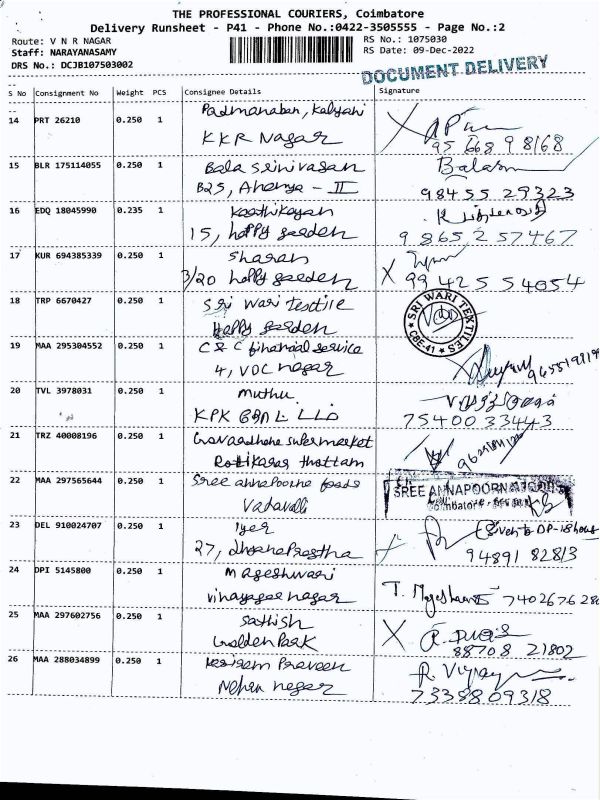 THE PROFESSIONAL COURIERS, Coimbatore
Delivery Runsheet - P41 - Phone No.:0422-3505555 - Page No.:2
Route: V N R NAGAR
RS No.: 1075030
Staff: NARAYANASAMY
RS Date: 09-Dec-2022
DRS No.: DCJB107503002
DOCUMENT DELIVERY
S No Consignment No Weight PCS Consignee Details Signature
14 PRT 26210 0.250 1 Padmanaban, Kalyani
KKR Nagar
95 668 98168
15 BLR 175114055 0.250 1 Bala Srinivasan
B25, - II
Balasm
98455 29323
16 EDQ 18045990 0.235 1 Kaathikayan
15, happy garden
9 865 257467
17 KUR 694385339 0.250 1 Sharan
3/20 happy garden
99 425 54054
18 TRP 6670427 0.250 1 Sri Wari Textile
Happy garden
SRI WARI TEXTILES
CBE-41
19 MAA 295304552 0.250 1 C & C financial service
4, VOC nagar
20 TVL 3978031 0.250 1 muthu
KPK
75400 33443
21 TRZ 40008196 0.250 1 supermarket
thottam
22 MAA 297565644 0.250 1 Sree annapoorna foods
Vadavalli
SREE ANNAPOORNA FOODS
Coimbatore
23 DEL 910024707 0.250 1 Iyer
27, dhyanaprastha
(Given to DP-18 hous
94891 82813
24 DPI 5145800 0.250 1 Mageshwari
vinayagar nagar
T. 7402676280
25 MAA 297602756 0.250 1 Sathish
Golden Park
88708 21802
26 MAA 288034899 0.250 1 Praveen
Nehru nagar
R. Vijay
7338809318